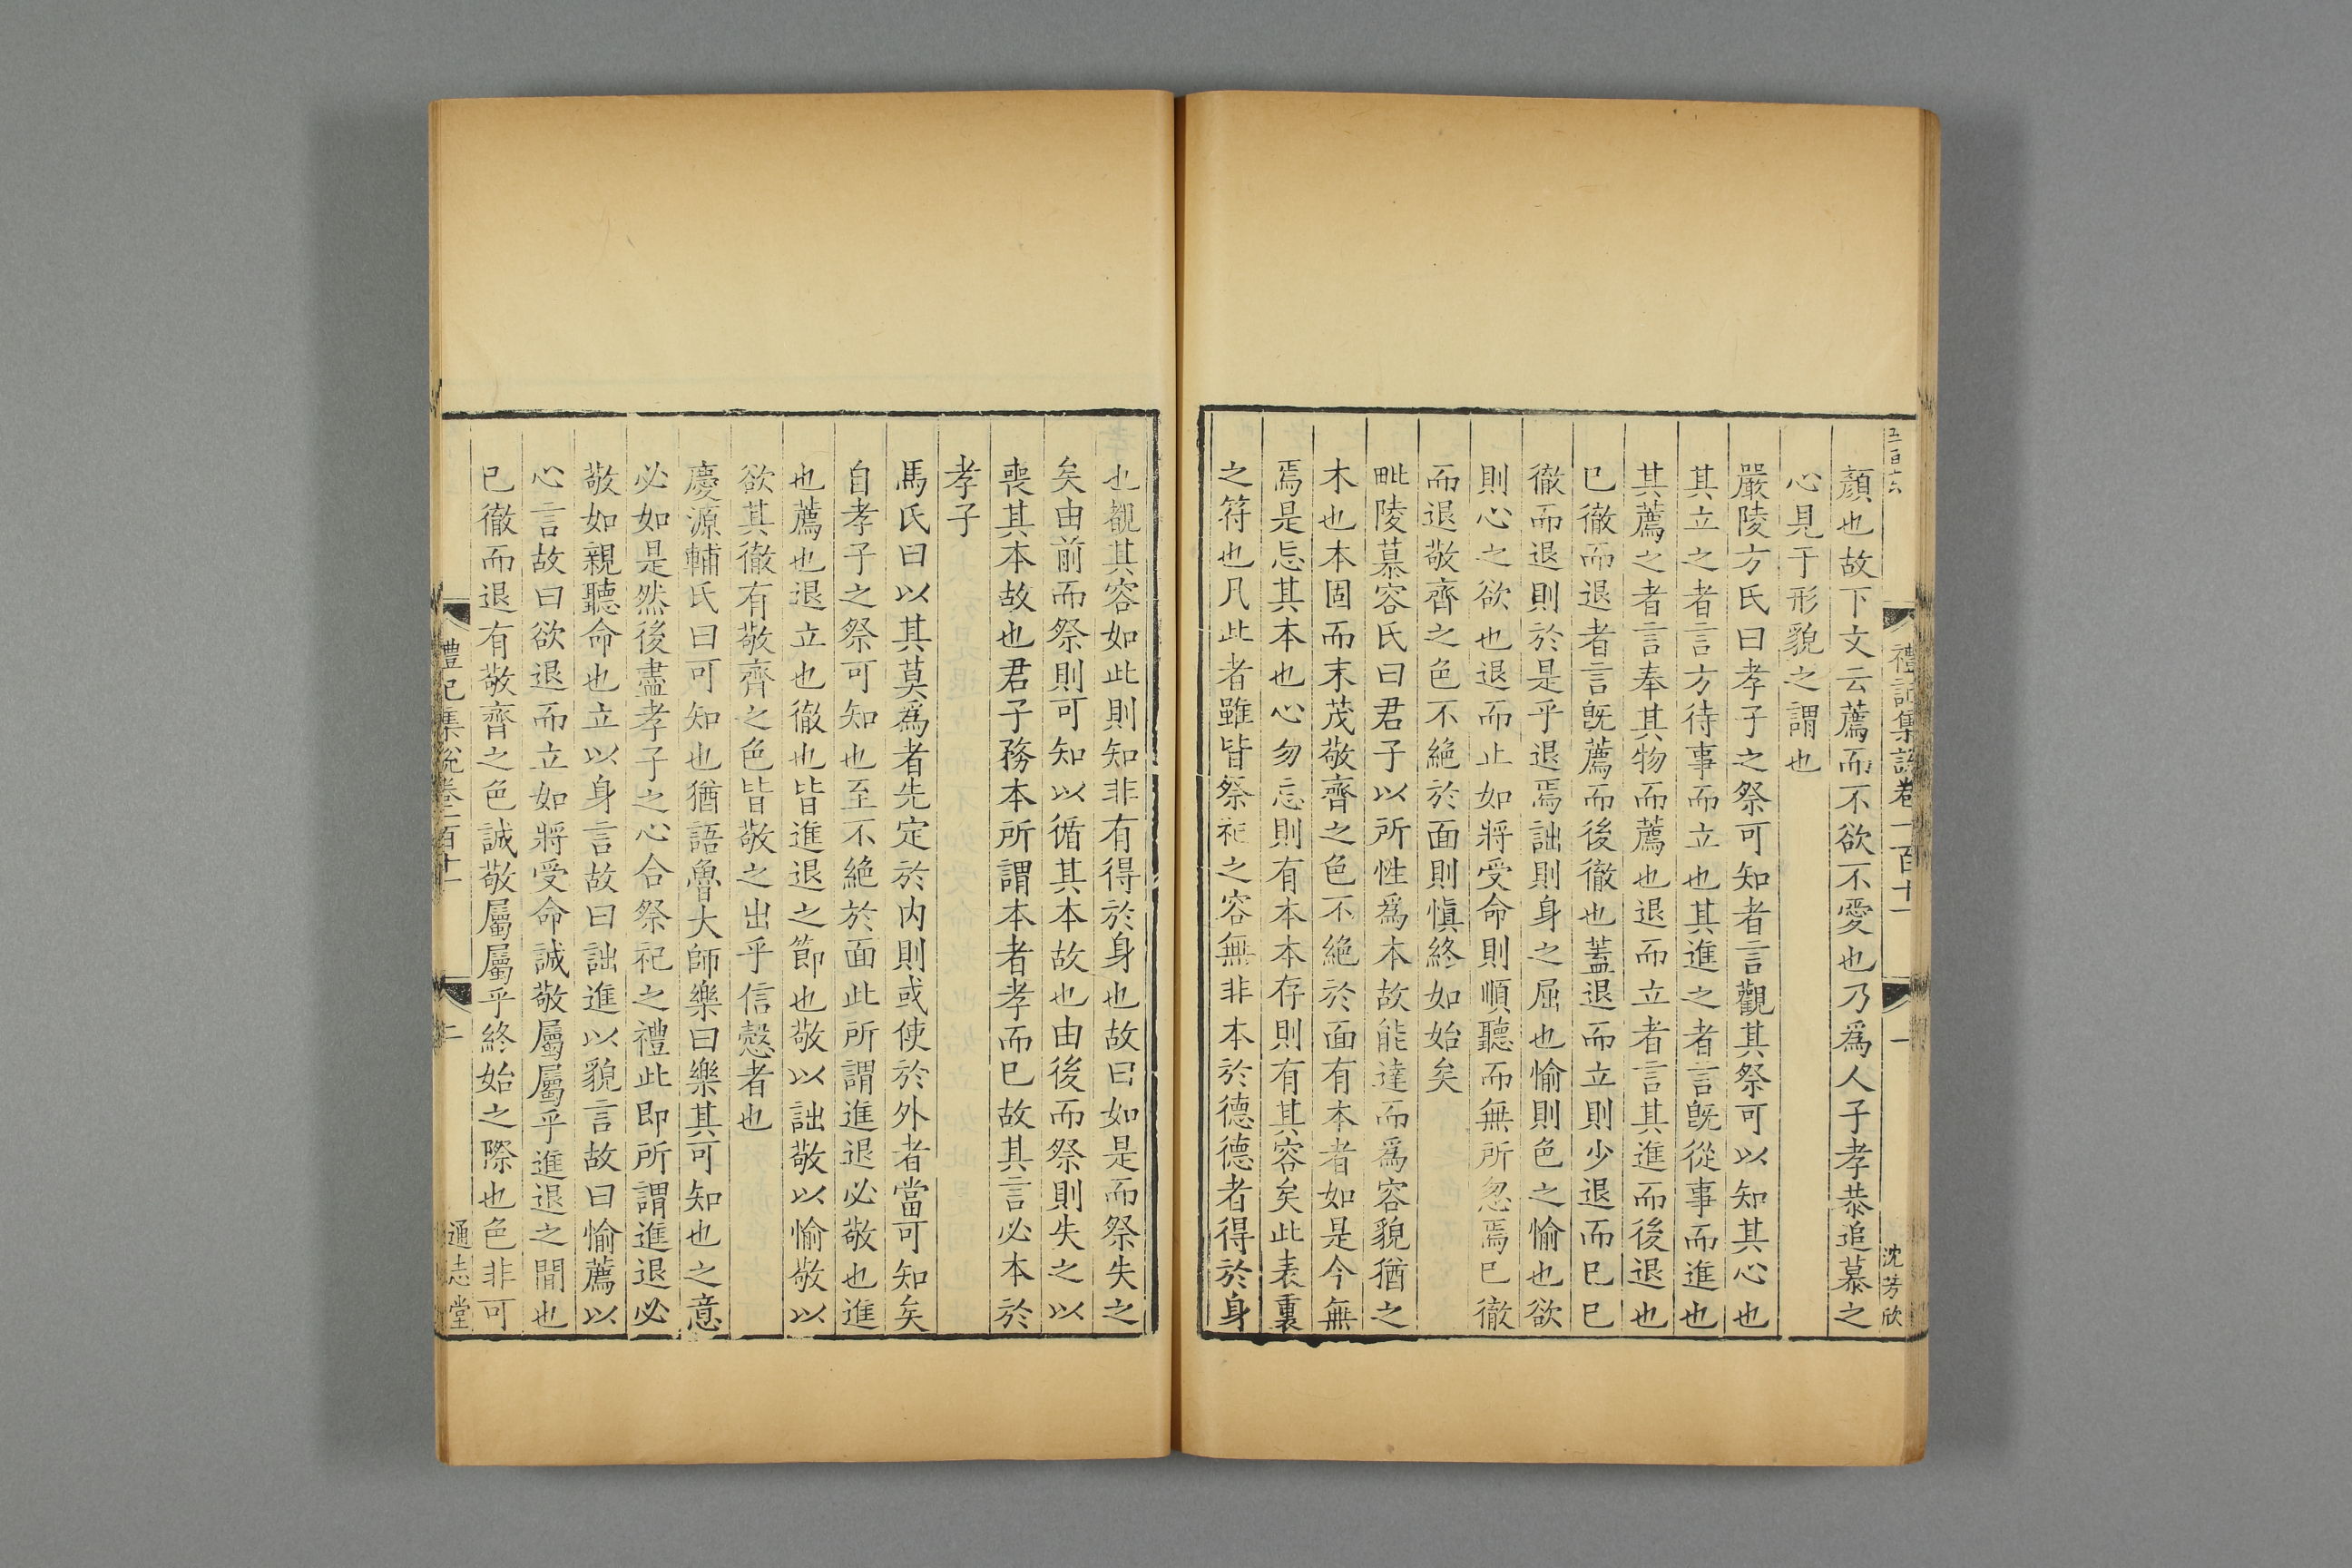 五百六
禮記集說卷一百十一
一
沈芳欣
顏也故下文云薦而不欲不愛也乃爲人子孝恭追慕之
心見于形貌之謂也
嚴陵方氏曰孝子之祭可知者言觀其祭可以知其心也
其立之者言方待事而立也其進之者言旣從事而進也
其薦之者言奉其物而薦也退而立者言其進而後退也
已徹而退者言旣薦而後徹也蓋退而立則少退而已已
徹而退則於是乎退焉詘則身之屈也愉則色之愉也欲
則心之欲也退而止如將受命則順聽而無所忽焉已徹
而退敬齊之色不絶於面則愼終如始矣
毗陵慕容氏曰君子以所性爲本故能達而爲容貌猶之
木也本固而末茂敬齊之色不絶於面有本者如是今無
焉是忘其本也心勿忘則有本本存則有其容矣此表裏
之符也凡此者雖皆祭祀之容無非本於德德者得於身
也觀其容如此則知非有得於身也故曰如是而祭失之
矣由前而祭則可知以循其本故也由後而祭則失之以
喪其本故也君子務本所謂本者孝而已故其言必本於
孝子
馬氏曰以其莫爲者先定於内則或使於外者當可知矣
自孝子之祭可知也至不絶於面此所謂進退必敬也進
也薦也退立也徹也皆進退之節也敬以詘敬以愉敬以
欲其徹有敬齊之色皆敬之出乎信愨者也
慶源輔氏曰可知也猶語魯大師樂曰樂其可知也之意
必如是然後盡孝子之心合祭祀之禮此即所謂進退必
敬如親聽命也立以身言故曰詘進以貌言故曰愉薦以
心言故曰欲退而立如將受命誠敬屬屬乎進退之間也
已徹而退有敬齊之色誠敬屬屬乎終始之際也色非可
禮記集說卷一百十一
二
通志堂